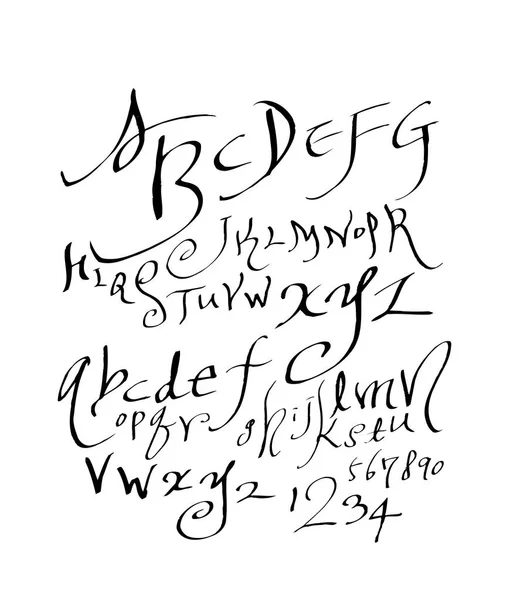 ABCDEFG
HIQSJKLMNOPR
TUVWXYZ
abcdefghijklmn
opqrstu
vwxyz 567890
1234